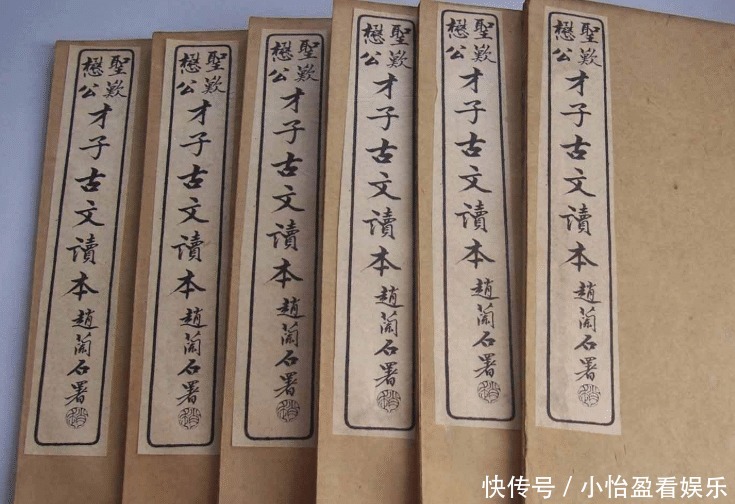 聖歎
懋公
才子古文讀本 趙蘭石署
聖歎
懋公
才子古文讀本 趙蘭石署
聖歎
懋公
才子古文讀本 趙蘭石署
聖歎
懋公
才子古文讀本 趙蘭石署
聖歎
懋公
才子古文讀本 趙蘭石署
聖歎
懋公
才子古文讀本 趙蘭石署
快传号 / 小怡盈看娱乐